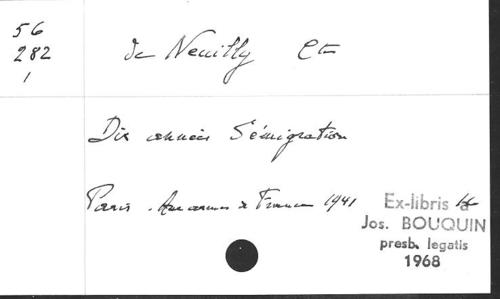 56
282
1
de Neuilly Cte
Dix années d'émigration
Paris. Aux armes de France 1941
Ex-libris
Jos. BOUQUIN
presb. legatis
1968